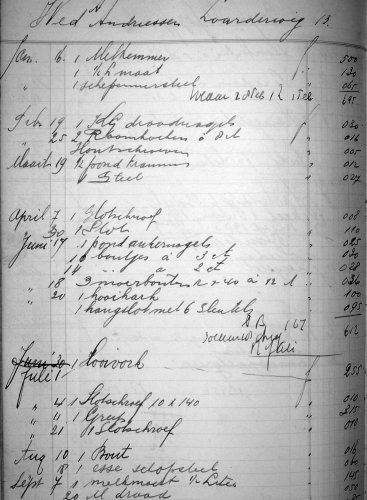 Wed Andriessen Loarderweg 13.
Jan. 6. 1 Melkemmer 500
" 1 ½ L maat 130
" 1 schepemmersteel 065
695
Feb. 19 1 KG draadnagels 030
" 25 2 Boomhoeken à 8 ct 016
Houtschroeven 005
Maart 19 ½ pond krammen 012
1 Steel 027
April 7 1 Slotschroef 008
" 30 1 Slot 110
Juni 17 1 pond ankernagels 025
10 boutjes à 3 ct 030
14 " à 2 ct 028
" 18 3 moerbouten à 12 ct 036
" 20 1 hooihark 100
1 hangslot met 6 sleutels 095
612
Juni 30
Juli 1 1 Hooivork 255
" 4 1 Slotschroef 10 x 140 010
" 11 1 Greep 315
" 21 1 Slotschroef 010
Aug 10 1 Bout 016
" 18 1 esse schopsteel
Sept 7 1 melkmaat ½ Liter 145
20 M draad 050